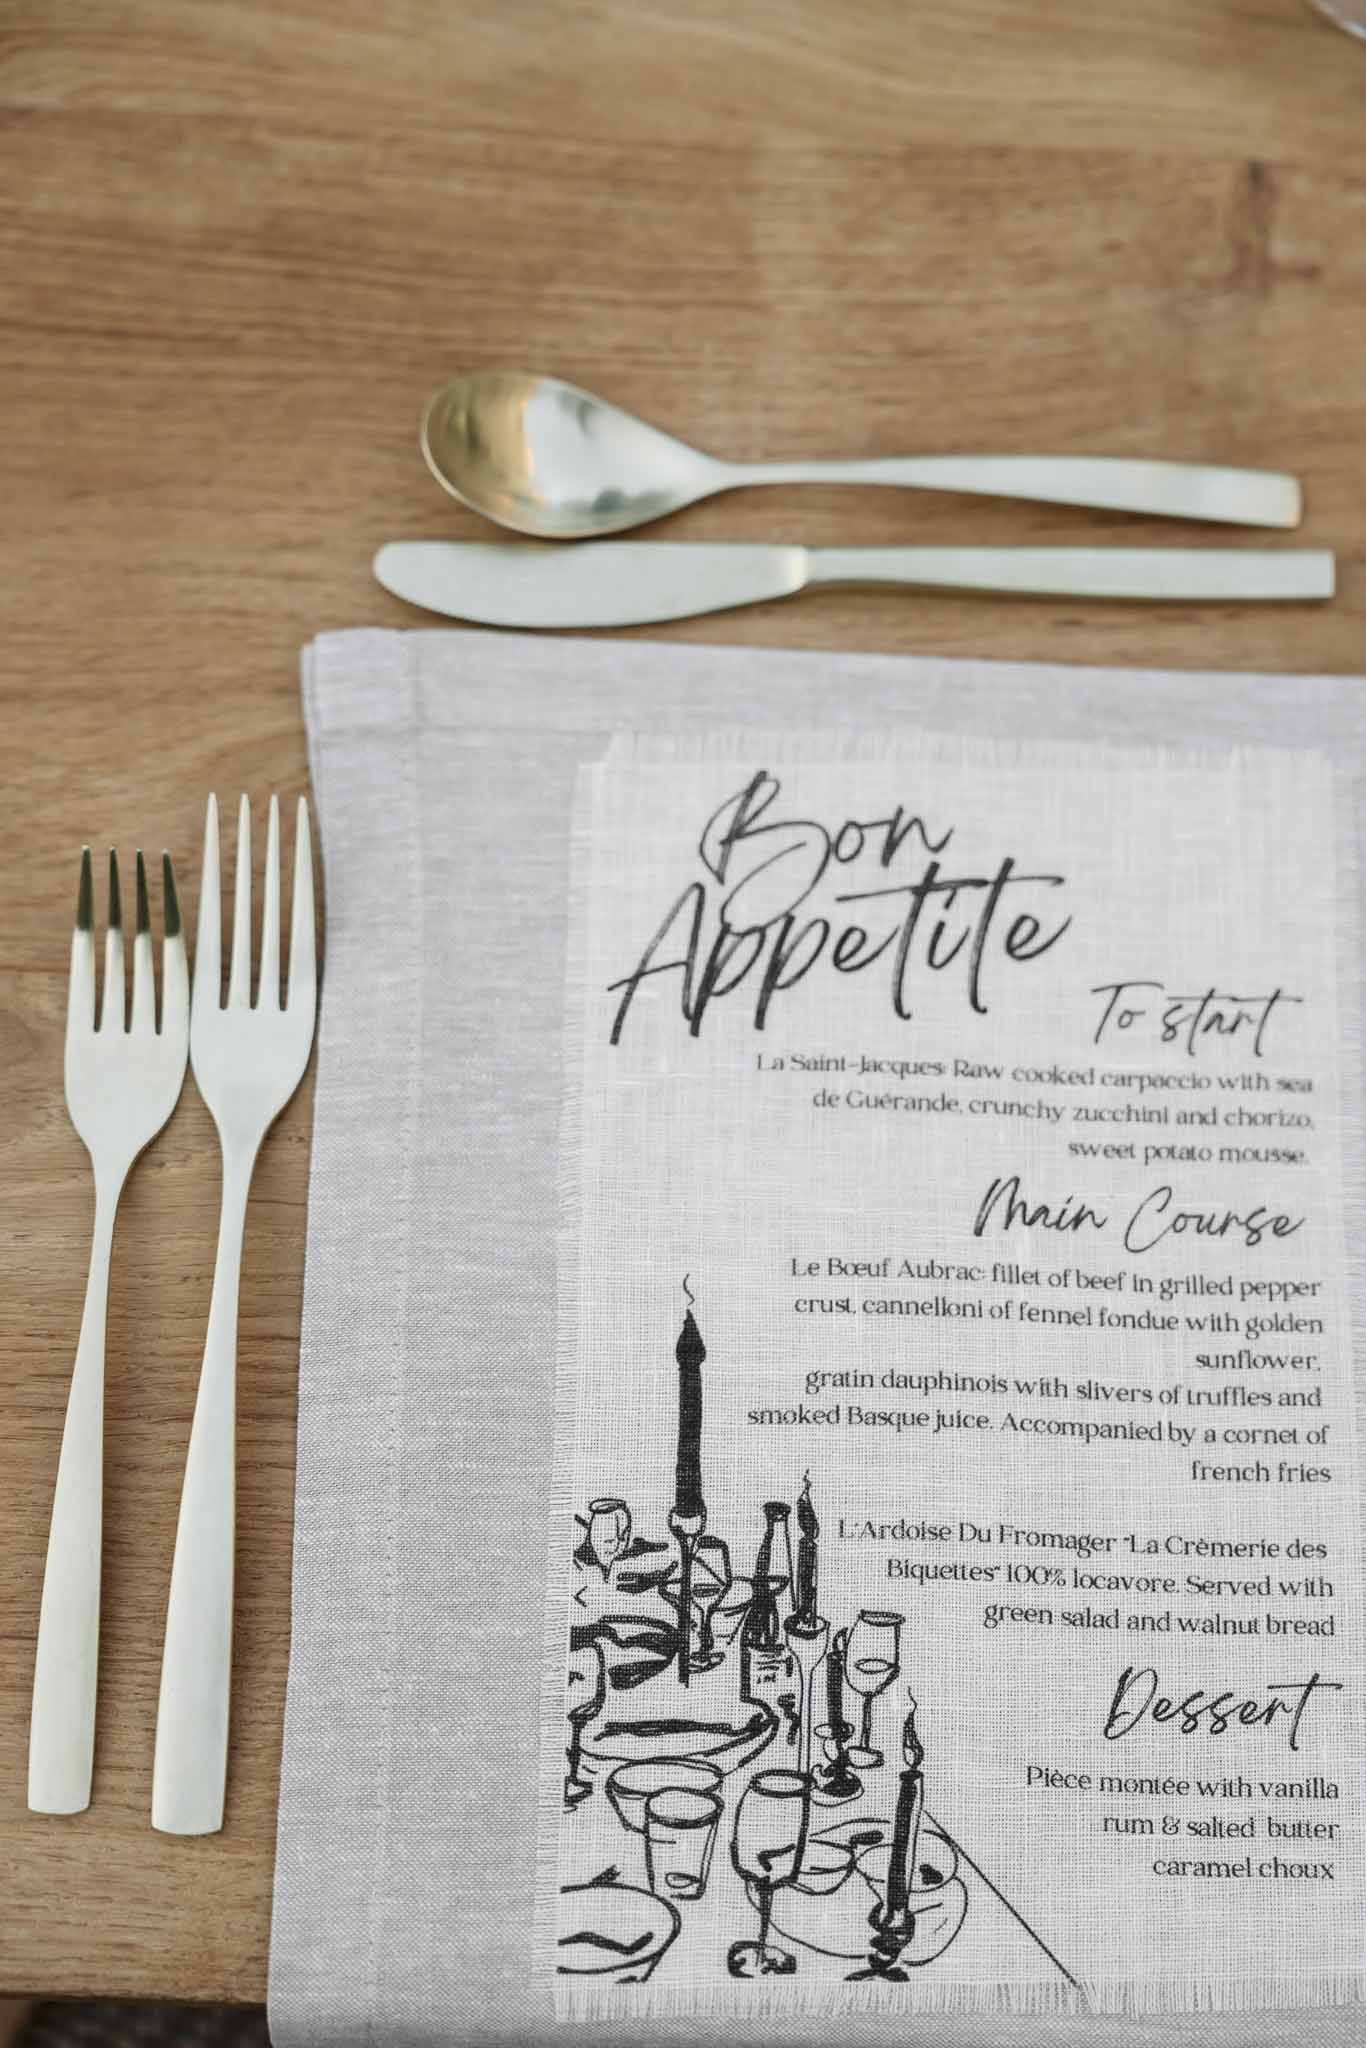 Bon
Appetite
To start
La Saint-Jacques: Raw cooked carpaccio with sea
de Guérande, crunchy zucchini and chorizo,
sweet potato mousse.
Main Course
Le Bœuf Aubrac: fillet of beef in grilled pepper
crust, cannelloni of fennel fondue with golden
sunflower,
gratin dauphinois with slivers of truffles and
smoked Basque juice. Accompanied by a cornet of
french fries
L'Ardoise Du Fromager "La Crèmerie des
Biquettes" 100% locavore. Served with
green salad and walnut bread
Dessert
Pièce montée with vanilla
rum & salted butter
caramel choux